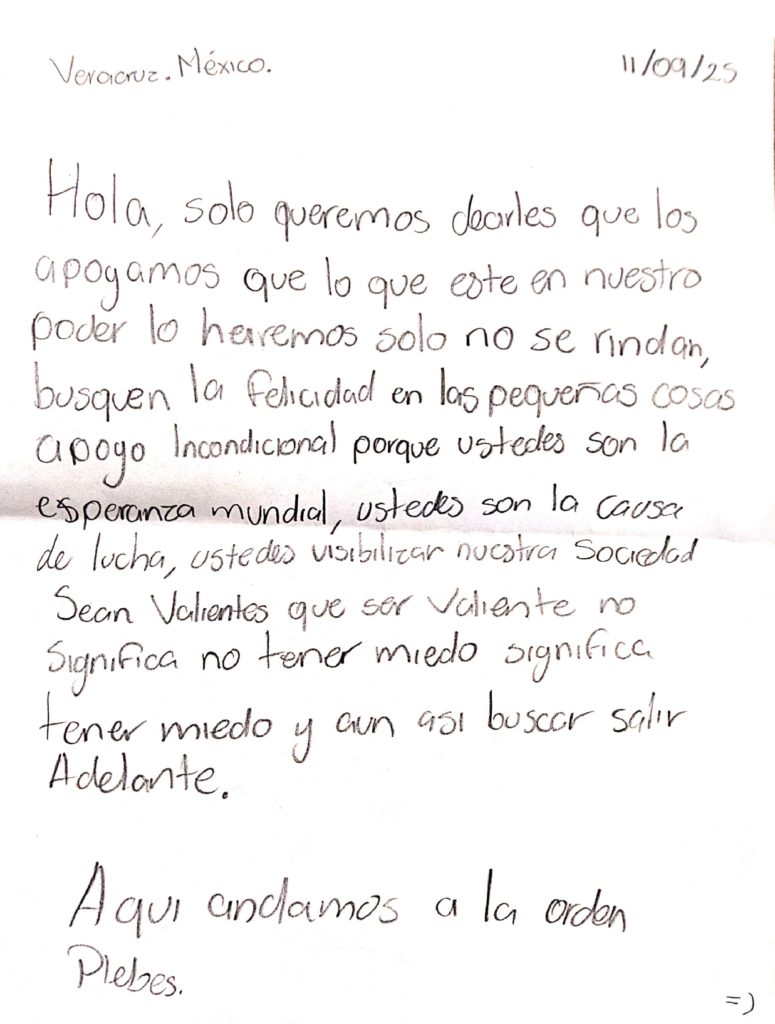 Veracruz. México. 11/09/25
Hola, solo queremos decirles que los
apoyamos que lo que este en nuestro
poder lo haremos solo no se rindan,
busquen la felicidad en las pequeñas cosas
apoyo Incondicional porque ustedes son la
esperanza mundial, ustedes son la causa
de lucha, ustedes visibilizar nuestra Sociedad
Sean Valientes que ser Valiente no
Significa no tener miedo significa
tener miedo y aun asi buscar salir
Adelante.
Aqui andamos a la orden
Plebes.
=)